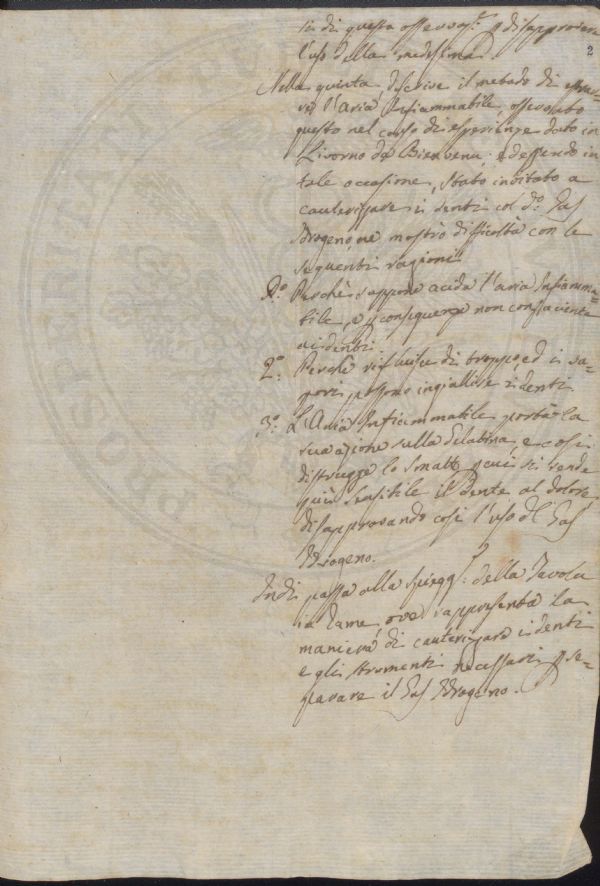 si di questa osservaz.e p disapprovare
l'uso della medesima.
2
Nella quinta descrive il metodo di
re l'aria Infiammabile, osservato
questo nel corso di esperienze dato in
Livorno da Bienvenu; ed essendo in
tale occasione, stato invitato a
cauterizzare i denti col d.o Gas
Idrogeno, ne mostrò difficoltà con le
seguenti ragioni.
P.o Perchè suppone acida l'aria Infiamma=
bile, e p conseguenza non confaciente
ai denti.
2.o Perchè di troppo, ed i va=
pori possono ingiallire i denti
3.o L'Aria Infiammabile porta la
sua azione sulla Gelatina, e così
distrugge lo smalto, p cui si rende
più sensibile il Dente al dolore,
disapprovando così l'uso del Gas
Idrogeno.
Indi passa alla spiegaz.e della Tavola
in Rame, ove rappresenta la
maniera di cauterizzare i denti
e gli stromenti necessari p se=
parare il Gas Idrogeno.